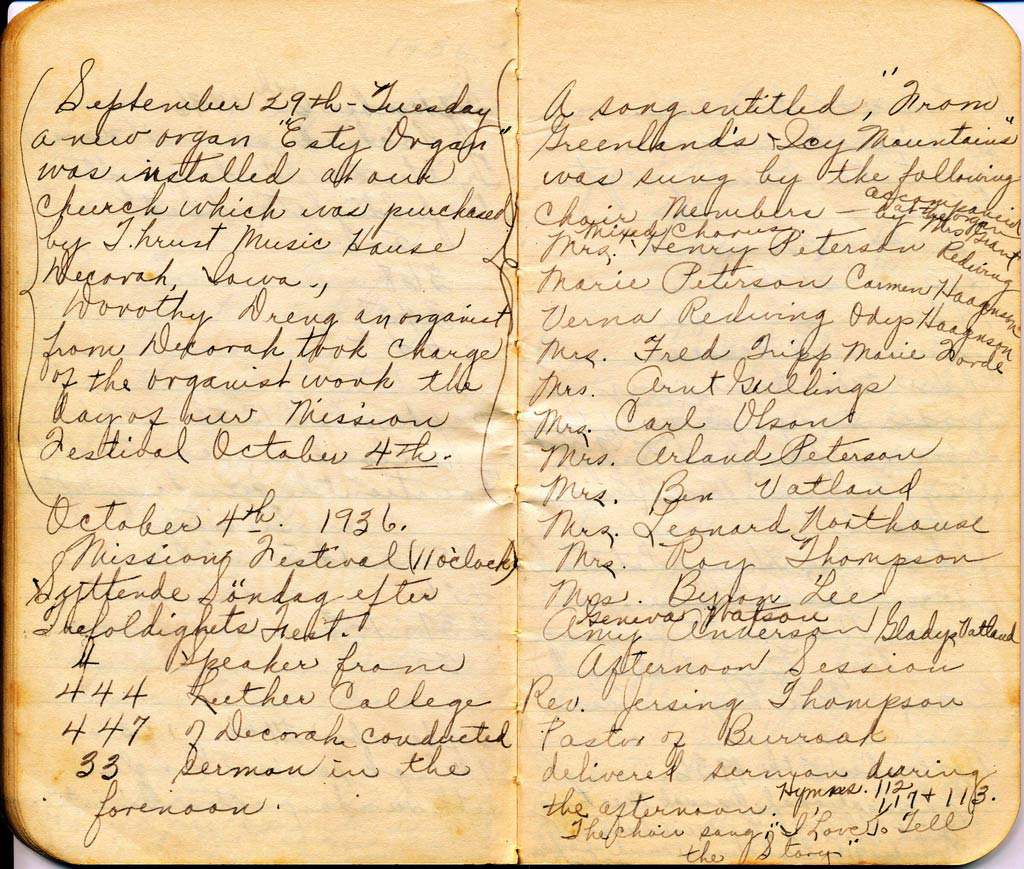 September 29th - Tuesday
a new organ "Esty Organ"
was installed at our
church which was purchased
by Thrust Music House
Decorah, Iowa.,
Dorothy Dreng an organist
from Decorah took charge
of the organist work the
day of our Mission
Festival October 4th.
October 4th. 1936.
Missions Festival (11 o'clock)
Syttende Söndag efter
Trefoldighets Fest.
4 Speaker from
444 Luther College
447 of Decorah conducted
33 Sermon in the
forenoon.
A song entitled, "From
Greenland's Icy Mountains"
was sung by the following
Choir Members - accompanied
by at the organ Mrs Grant Rediving
Mixed Chorus.
Mrs. Henry Peterson
Marie Peterson Carmen Haagnson
Verna Rediving Odys Haagnson
Mrs. Fred Tripp Marie Forde
Mrs. Arnt Gullings
Mrs. Carl Olson
Mrs. Arland Peterson
Mrs. Ben Vatland
Mrs. Leonard Northouse
Mrs. Roy Thompson
Mrs. Byron Lee
Geneva Watson
Amy Anderson Gladys Vatland
Afternoon Session
Rev. Jersing Thompson
Pastor of Burroak
delivered sermon during
the afternoon. Hymnes. 112
117 + 113.
The choir sang, "I Love To Tell
the Story"